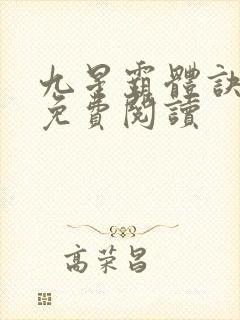 九星霸體訣
免費閱讀
高荣昌